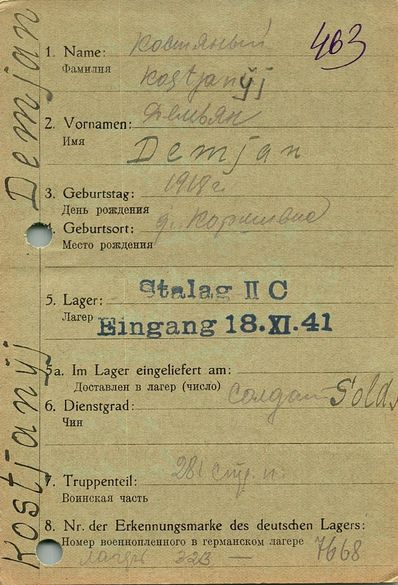 Kostjanÿj Demjan
463
1. Name: Костяный
Фамилия
Kostjanÿj
2. Vornamen: Демьян
Имя
Demjan
3. Geburtstag: 1918г
День рождения
4. Geburtsort: д.
Место рождения
5. Lager: Stalag II C
Лагер
Eingang 18.XI.41
5a. Im Lager eingeliefert am:
Доставлен в лагер (число)
6. Dienstgrad: солдат Sold.
Чин
7. Truppenteil: 281 стр. п.
Воинская часть
8. Nr. der Erkennungsmarke des deutschen Lagers:
Номер военнопленного в германском лагере
лагерь —